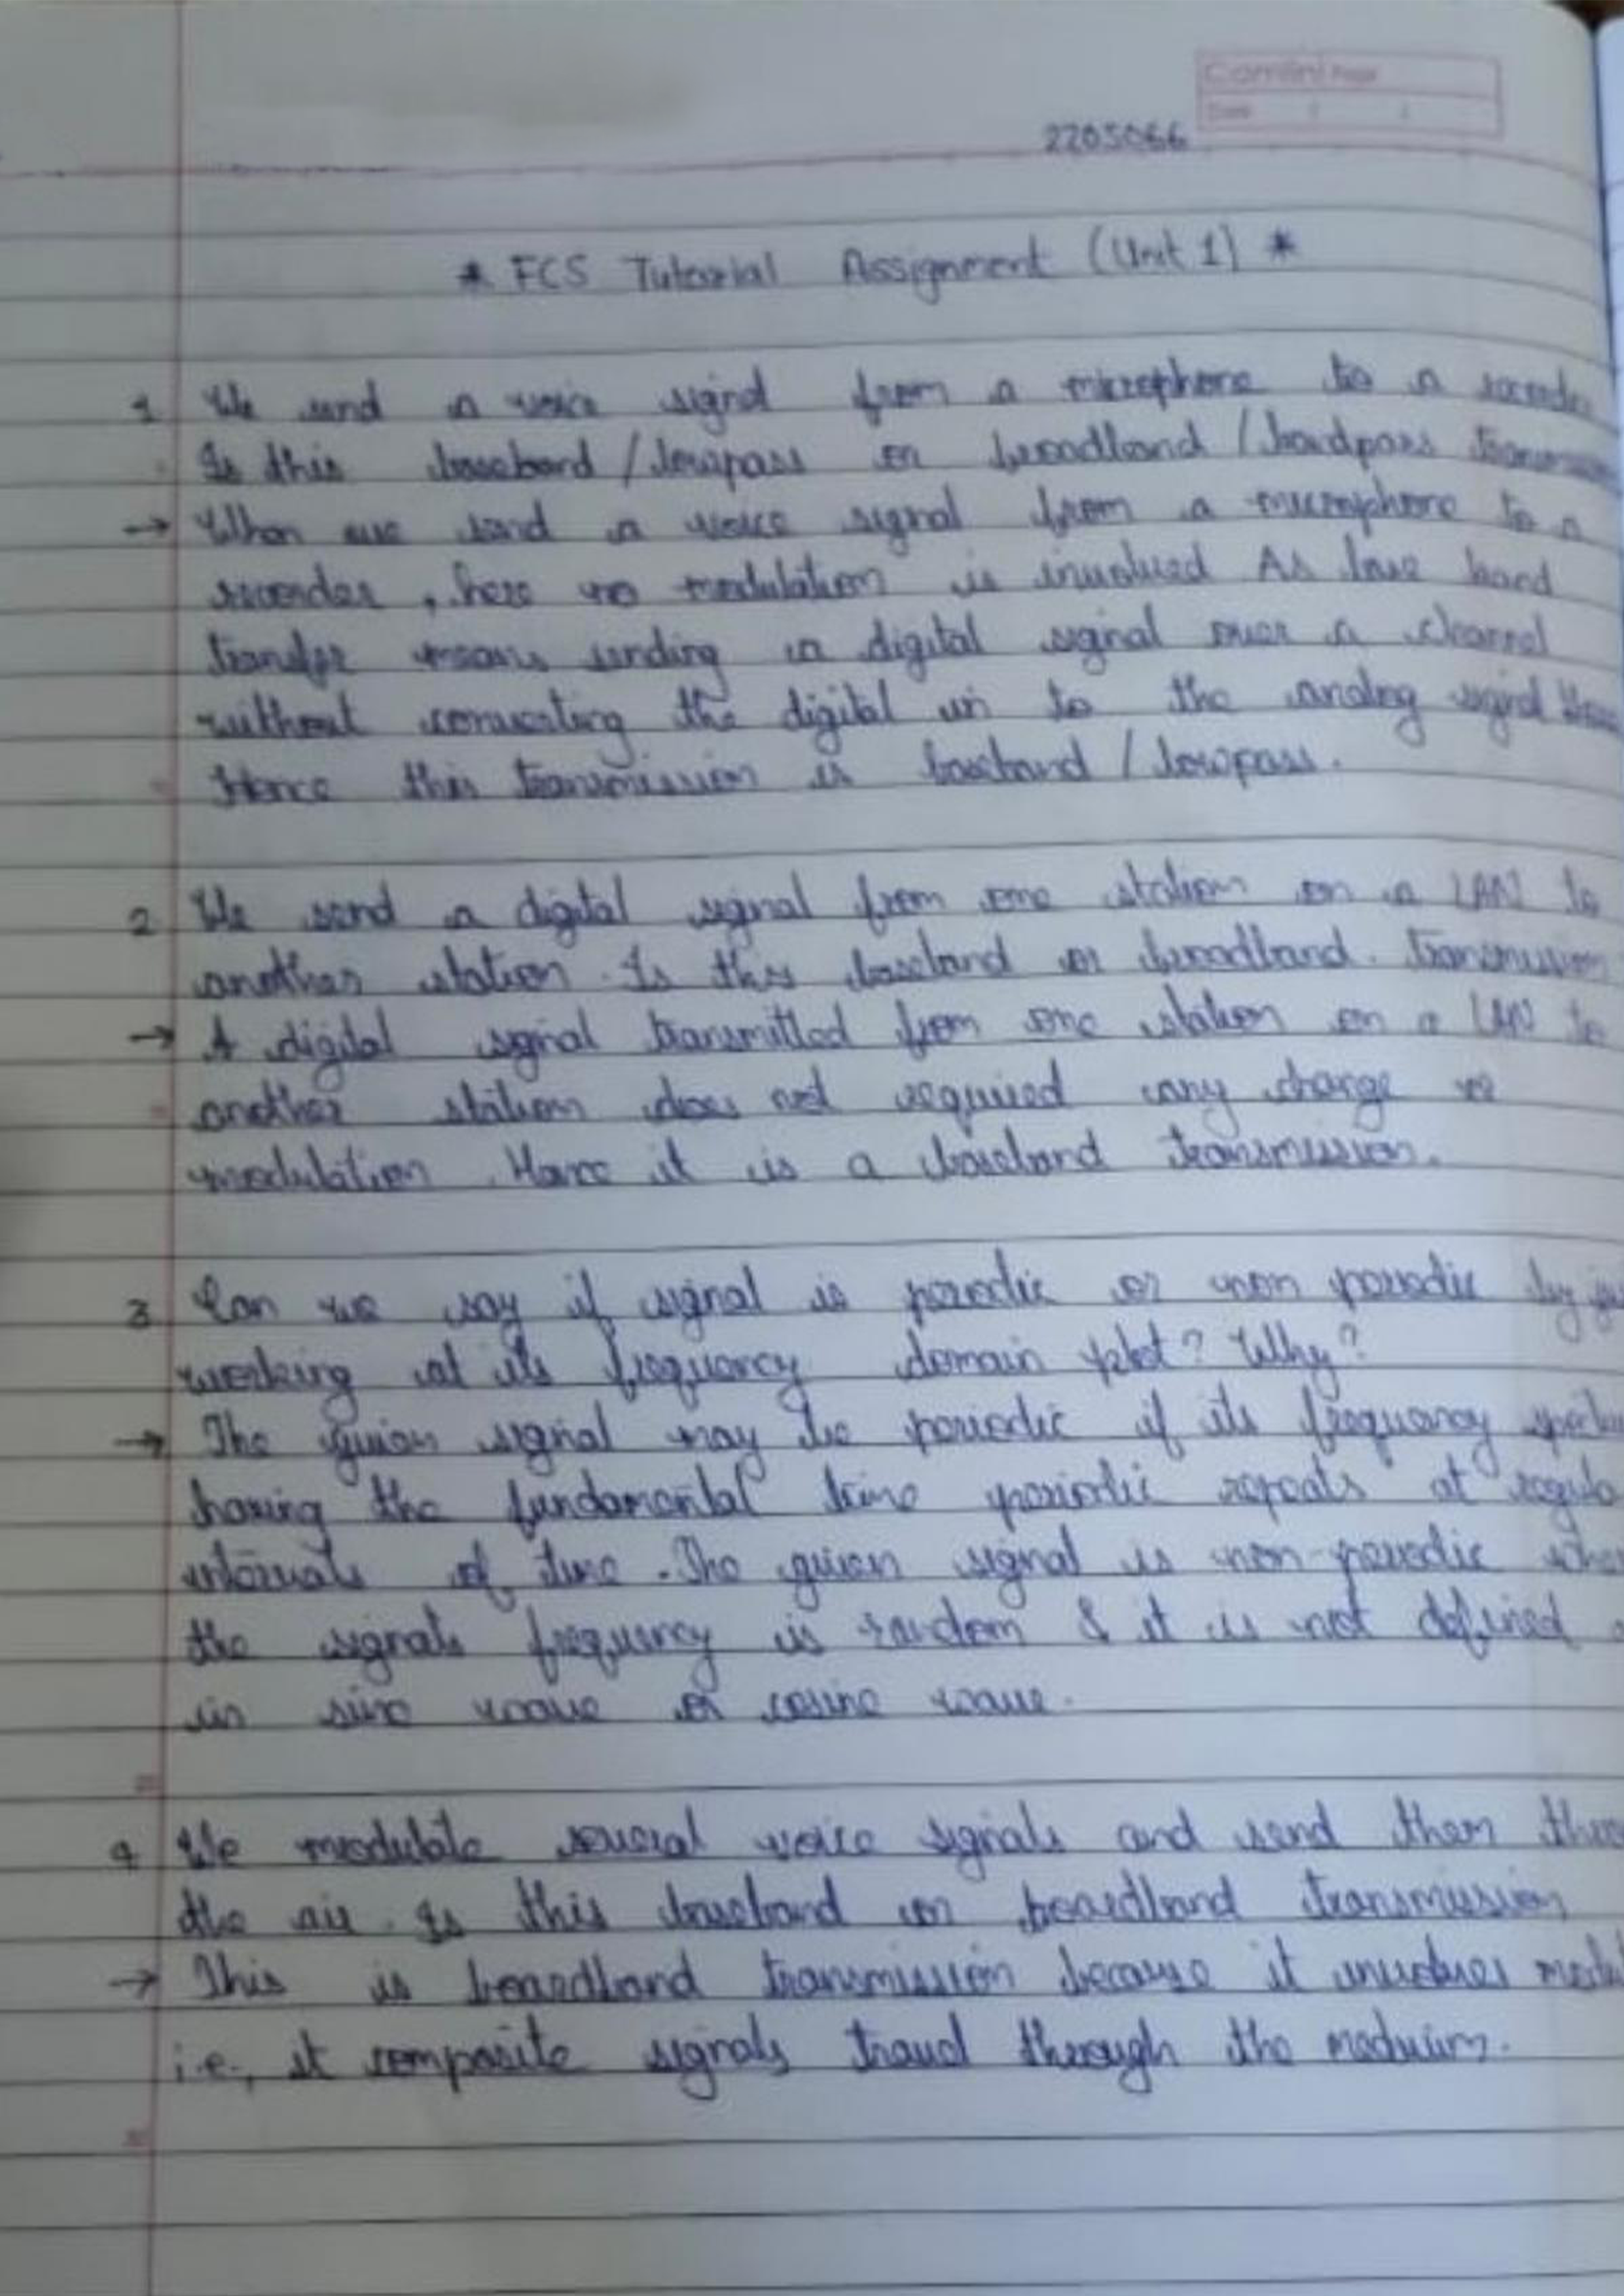 Camlin Page
Date / /
2205066
* FCS Tutorial Assignment (Unit 1) *
1 We send a voice signal from a microphone to a recorder
Is this baseband / lowpass or broadband / bandpass
→ When we send a voice signal from a microphone to a
recorder, here no modulation is involved As base band
transfer means sending a digital signal over a channel
without converting the digital in to the analog signal
Hence this transmission is baseband / lowpass.
2 We send a digital signal from one station on a LAN to
another station. Is this baseband or broadband. transmission
→ A digital signal transmitted from one station on a LAN to
another station does not required any change
modulation. Hence it is a baseband transmission.
3 Can we say if signal is periodic or non periodic by
working at its frequency domain plot? Why?
→ The given signal may be periodic if its frequency
having the fundamental time periodic repeats at
intervals of time. The given signal is non-periodic
the signals frequency is random & it is not defined
in sine wave or cosine wave.
4 We modulate several voice signals and send them
the air. Is this baseband or boardband transmission
→ This is boardband transmission because it involves
i.e., it composite signals travel through the meduium.